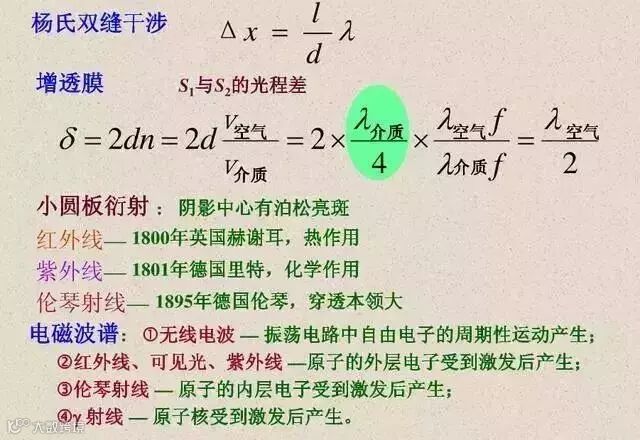 杨氏双缝干涉 Δx = l/d λ
增透膜 S₁与S₂的光程差
δ = 2dn = 2d V空气/V介质 = 2 × λ介质/4 × λ空气f/λ介质f = λ空气/2
小圆板衍射：阴影中心有泊松亮斑
红外线— 1800年英国赫谢耳，热作用
紫外线— 1801年德国里特，化学作用
伦琴射线— 1895年德国伦琴，穿透本领大
电磁波谱：①无线电波 — 振荡电路中自由电子的周期性运动产生；
②红外线、可见光、紫外线 —原子的外层电子受到激发后产生；
③伦琴射线 — 原子的内层电子受到激发后产生；
④γ射线 — 原子核受到激发后产生。
大数跨境